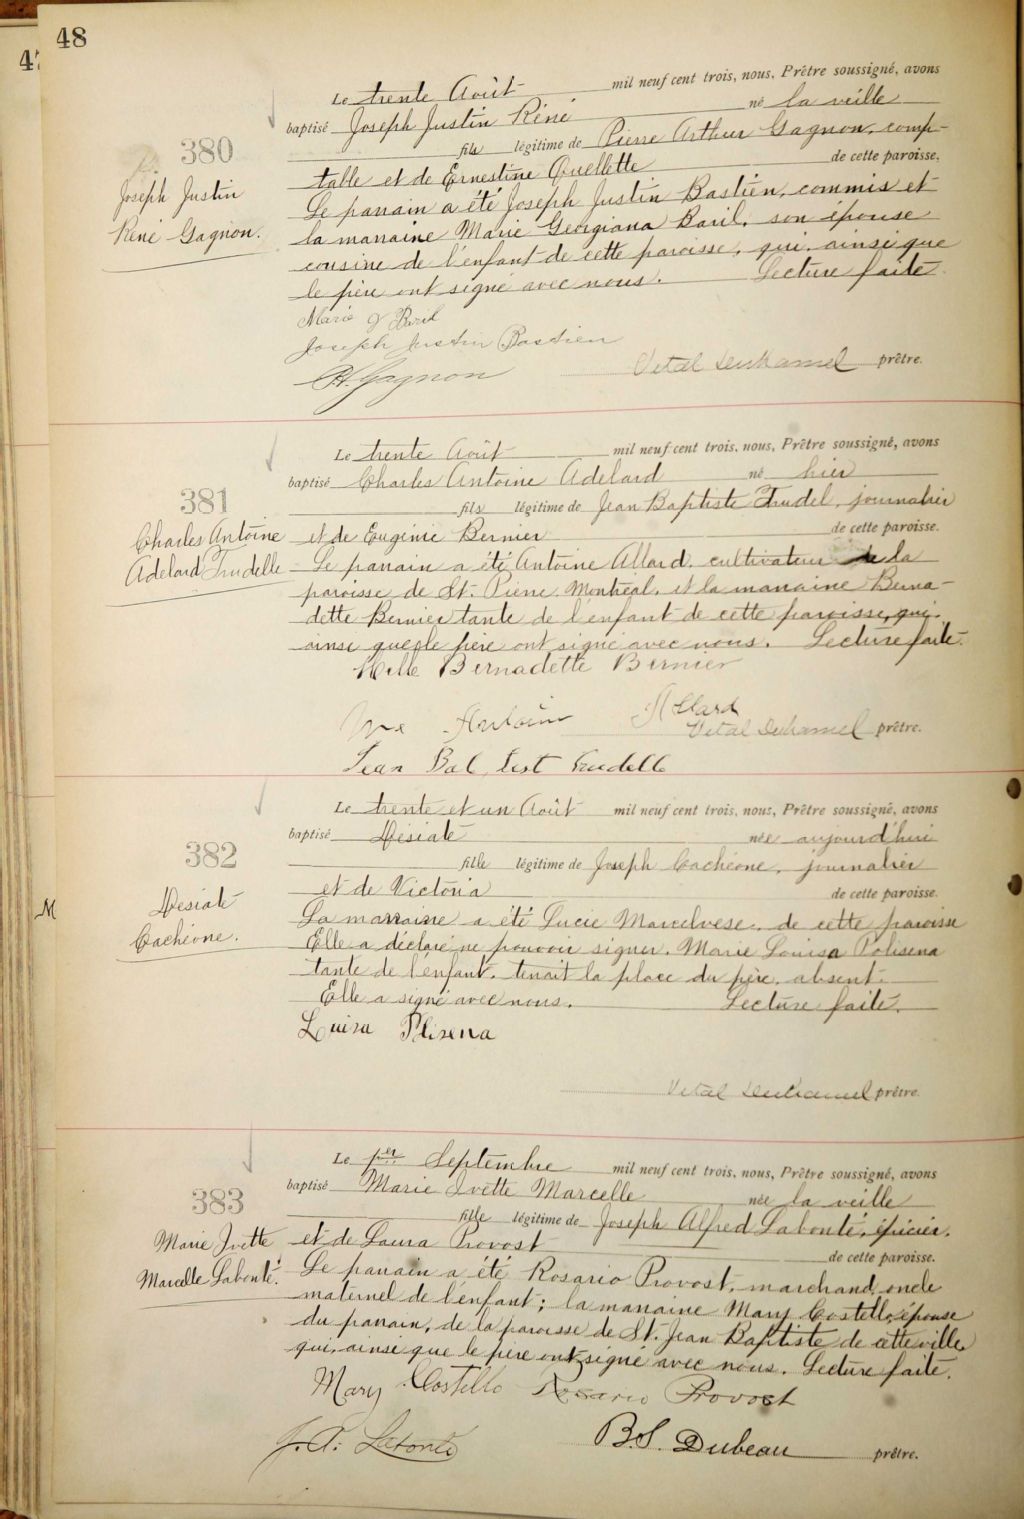 48
Le trente Août mil neuf cent trois, nous, Prêtre soussigné, avons
baptisé Joseph Justin Réné né la veille
380
fils légitime de Pierre Arthur Gagnon, comp-
table et de Ernestine Ouellette de cette paroisse.
Joseph Justin
René Gagnon.
Le parrain a été Joseph Justin Bastien, commis et
la marraine Marie Georgiana Baril, son épouse
cousine de l'enfant de cette paroisse, qui, ainsi que
le père ont signé avec nous. Lecture faite.
Marie G Baril
Joseph Justin Bastien
Gagnon
Vital Duhamel prêtre.
Le trente Août mil neuf cent trois, nous, Prêtre soussigné, avons
baptisé Charles Antoine Adelard né hier
381
fils légitime de Jean Baptiste Trudel, journalier
Charles Antoine
Adelard Trudelle
et de Eugénie Bernier de cette paroisse.
Le parrain a été Antoine Allard, cultivateur de la
paroisse de St. Pierre, Montréal, et la marraine Berna-
dette Bernier tante de l'enfant de cette paroisse, qui,
ainsi que le père ont signé avec nous. Lecture faite.
Melle Bernadette Bernier
Antoine Allard
Vital Duhamel prêtre.
Jean Bat tist Trudelle
Le trente et un Août mil neuf cent trois, nous, Prêtre soussigné, avons
baptisé Désiaté née aujourd'hui
382
fille légitime de Joseph Cachéone, journalier
et de Victoria de cette paroisse.
M
Désiaté
Cachéone.
La marraine a été Lucie Marcelvese, de cette paroisse
Elle a déclaré ne pouvoir signer. Marie Louisa Polisena
tante de l'enfant, tenait la place du père, absent.
Elle a signé avec nous. Lecture faite.
Luisa Plisena
Vital Duhamel prêtre.
Le 1er Septembre mil neuf cent trois, nous, Prêtre soussigné, avons
baptisé Marie Ivette Marcelle née la veille
383
fille légitime de Joseph Alfred Labonté, épicier,
Marie Ivette
Marcelle Labonté.
et de Laura Provost de cette paroisse.
Le parrain a été Rosario Provost, marchand, oncle
maternel de l'enfant; la marraine Mary Costello, épouse
du parrain, de la paroisse de St. Jean Baptiste de cette ville,
qui, ainsi que le père ont signé avec nous. Lecture faite.
Mary Costello Rosario Provost
J. A. Labonté
B.S. Dubeau prêtre.